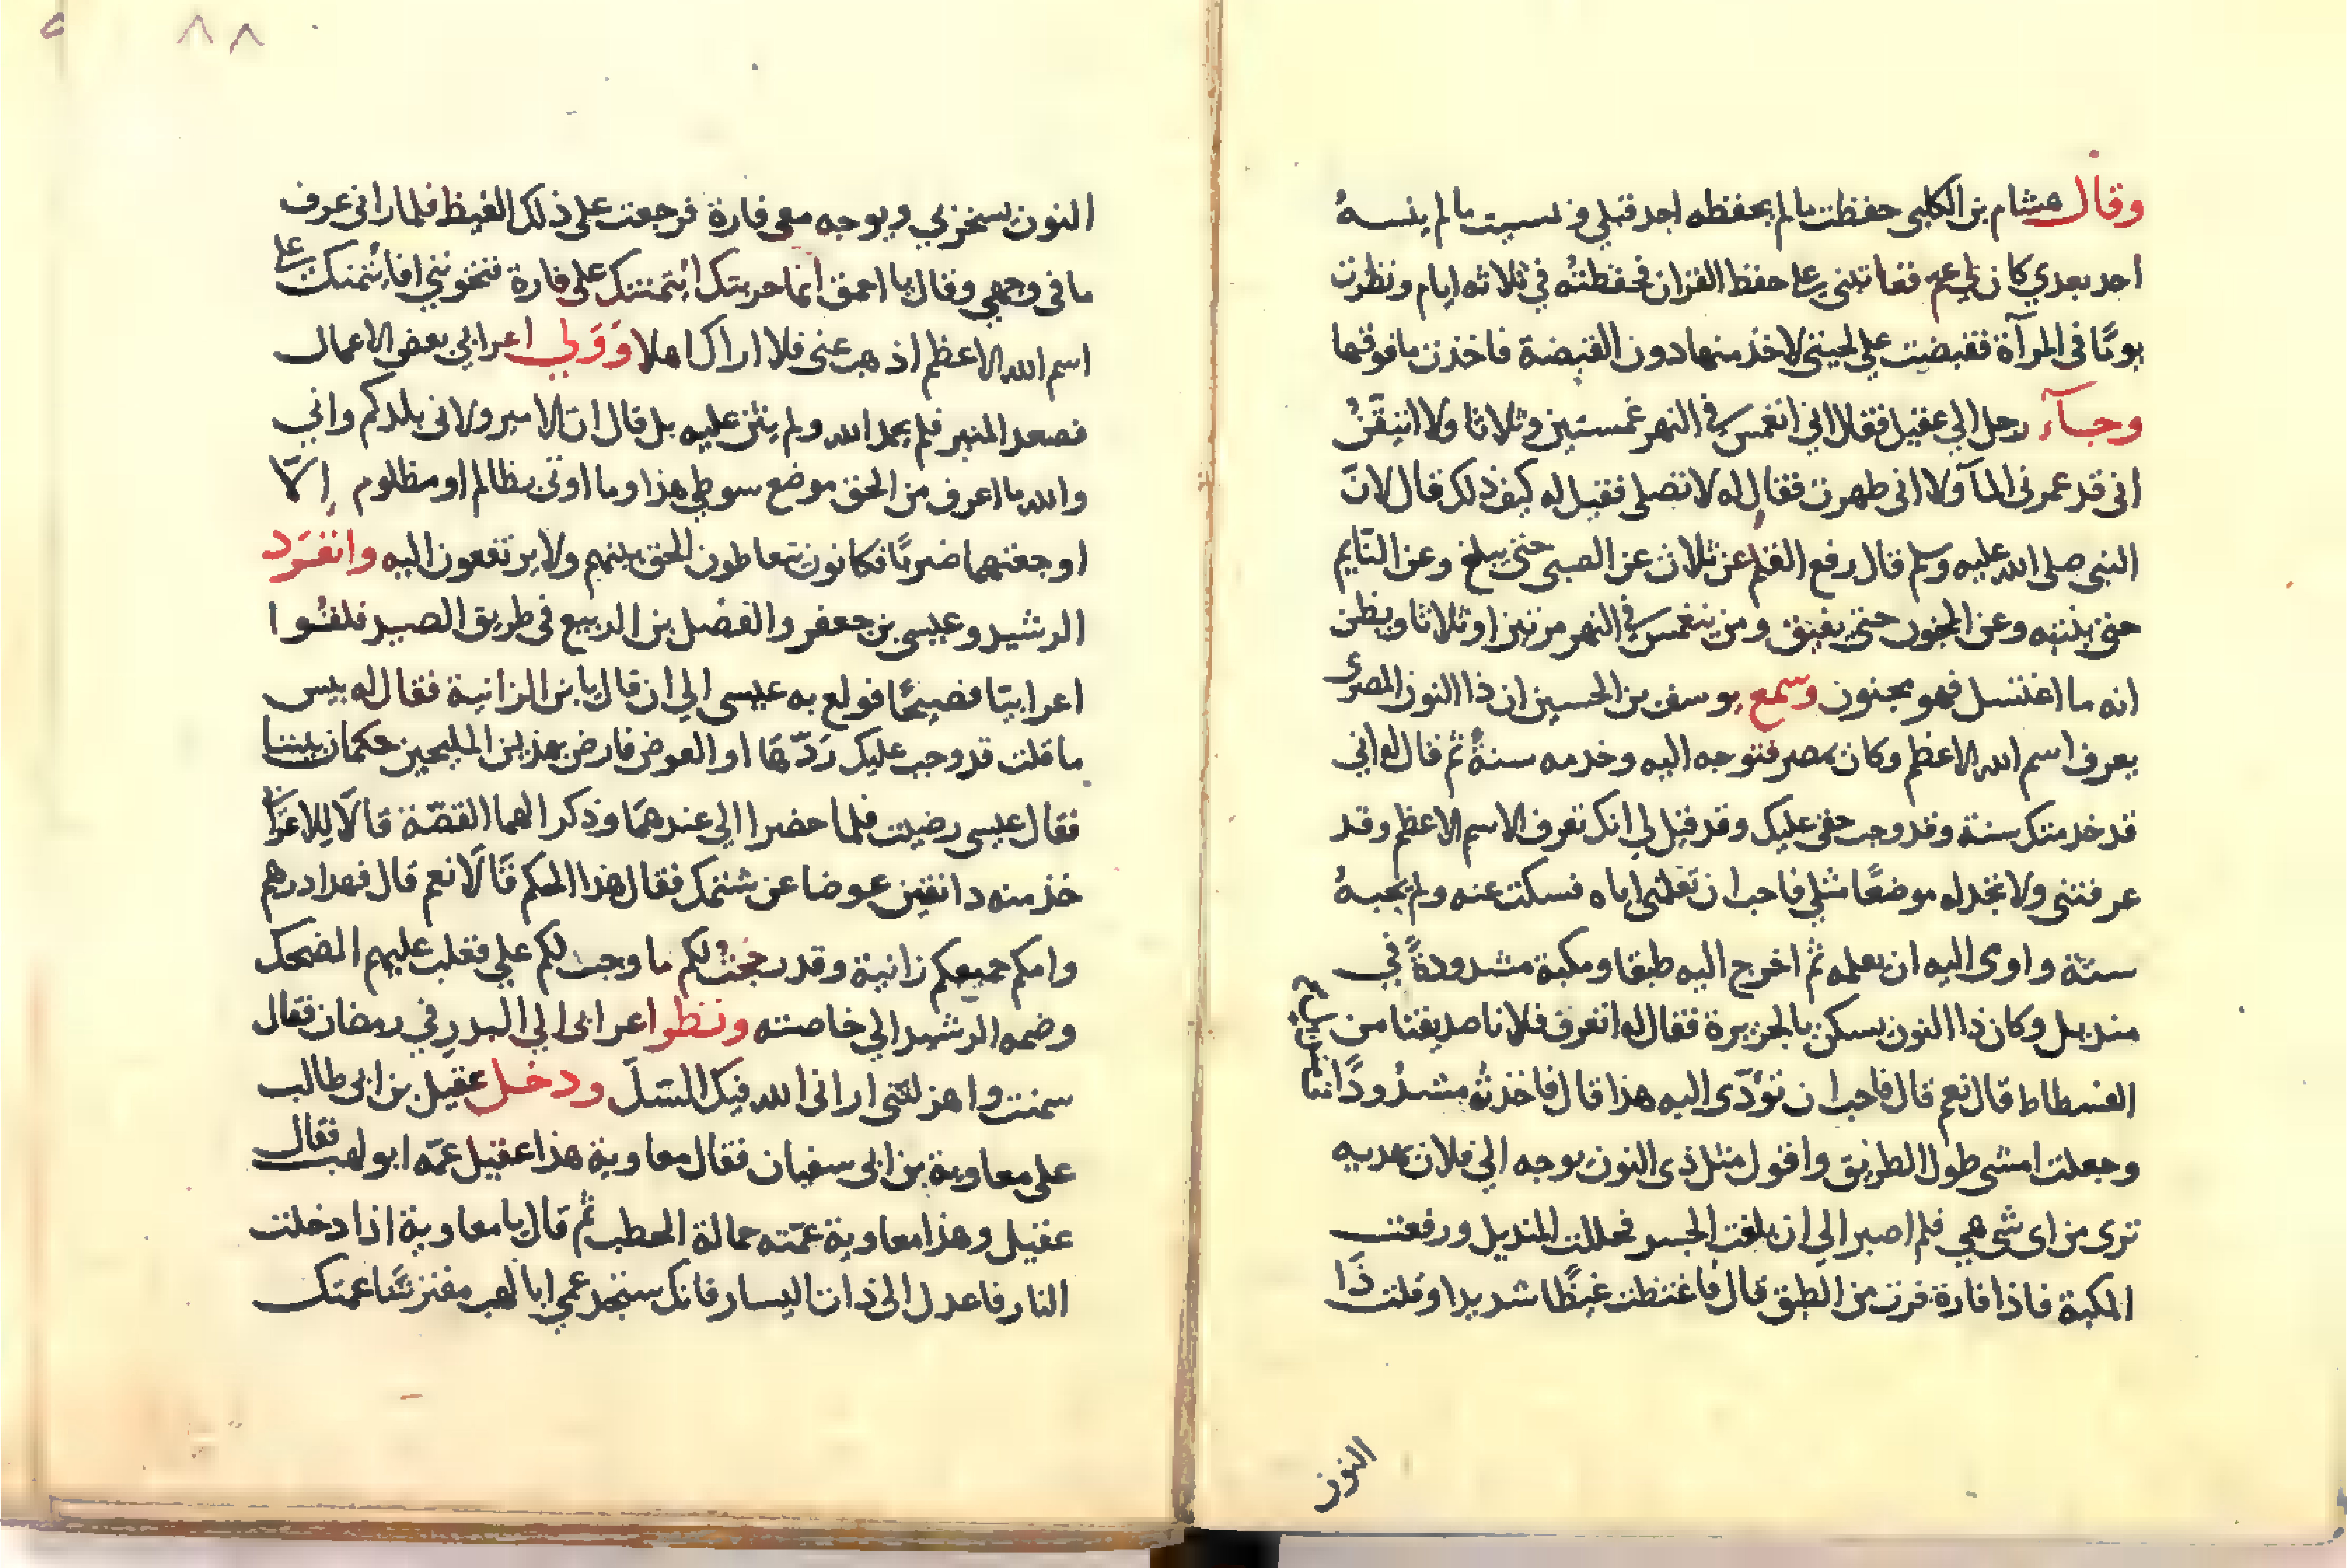 وقال هشام بن الكلبى حفظت ما لم يحفظه احد قبلي ونسيت ما لم ينسهُ
احد بعدي كان لي عم فعاتبنى على حفظ القران فحفظتهُ في ثلاثه ايام ونظرت
يومًا فى المرآة فقبضت علي لحيتي لاخذ منها دون القبضة فاخذت ما فوقها
وجآء رجل الي عقيل فقال اني انغمس في النهر غمستين وثلاثا ولا اتيقنُ
انى قد عمرنى المآ ولا انى طهرت فقال له لا تصلى فقيل له كيف ذلك قال لانّ
النبى صلى الله عليه وسلم قال رفع القلم عن ثلاث عن الصبى حتى يبلغ وعن النايم
حتى ينتبه وعن المجنون حتى يفيق ومن ينغمس في النهر مرتين او ثلاثا ويظن
انه ما اغتسل فهو مجنون وسمع يوسف بن الحسين ان ذا النون المصرى
يعرف اسم الله الاعظم وكان بمصر فتوجه اليه وخدمه سنةً ثم قال له اني
قد خدمتك سنة وقد وجب حقى عليك وقد قيل لي انك تعرف الاسم الاعظم وقد
عرفتنى ولا تجد له موضعًا مثلي فاحب ان تعلمنى اياه فسكت عنه ولم يجبهُ
ستة واوى اليه ان يعلمه ثم اخرج اليه طبقا ومكبة مشدودةً في
منديل وكان ذا النون يسكن بالجزيرة فقال له اتعرف فلانا صديقنا من
الفسطاط قال نعم قال فاحب ان تؤدّى اليه هذا قال فاخذتهُ مشدودًا
وجعلت امشى طول الطريق واقول مثل ذى النون يوجه الي فلان بهديه
ترى من اى شى هي فلم اصبر الي ان بلغت الجسر فحللت المنديل ورفعت
المكبة فاذا فارة فرت من الطبق قال فاغتظت غيظًا شديدا وقلت ذَا
النون
٨٨
النون يسخر بي ويوجه معى فارة فرجعت على ذلك الغيظ فلما رانى عرف
ما فى وجهي وقال يا احمق انما جربتك ائتمنتك على فارة فتخوننى افائتمنك على
اسم الله الاعظم اذهب عنى فلا اراك اهلا وَوَلي اعرابي بعض الاعمال
فصعد المنبر فلم يحمد الله ولم يثن عليه بل قال ان الامير ولانى بلدكم واني
والله ما اعرف من الحق موضع سوطي هذا وما اوتى بظالم او مظلوم الّا
اوجعتهما ضربًا فكانون يتعاطون الحق بينهم ولا يرتفعون اليه وانفرد
الرشيد وعيسى بن جعفر والفضل بن الربيع فى طريق الصيد فلقُوا
اعرابيّا فصيحًا فولع به عيسى الي ان قال يا بن الزانية فقال له بيس
ما قلت قد وجب عليك رَدّهَا او العوض فارض بهذين المليحين حكمان بيننا
فقال عيسى رضيت فلما حضرا الي عندهمَا وذكرا لهما القصّة قالَا للاعرابى
خذ منه دانقين عوضا عن شتمك فقال هذا الحكم قَالَا نعم قال فهدا درهم
وامكم جميعكم زانية وقد رجحتُ لكم ما وجب لكم علي فغلب عليهم الضحك
وضمه الرشيد الي خاصته ونظر اعرابى الي البدر في رمضان فقال
سمنت واهزلتنى ارانى الله فيك السّلّ ودخل عقيل بن ابى طالب
على معاوية بن ابى سفيان فقال معاوية هذا عقيل عمّه ابو لهب فقال
عقيل وهذا معاوية عمّته حمالة الحطب ثم قال يا معاوية اذا دخلت
النار فاعدل الى ذات اليسار فانك ستجد عمي ابا لهب مفترشًا عمتك